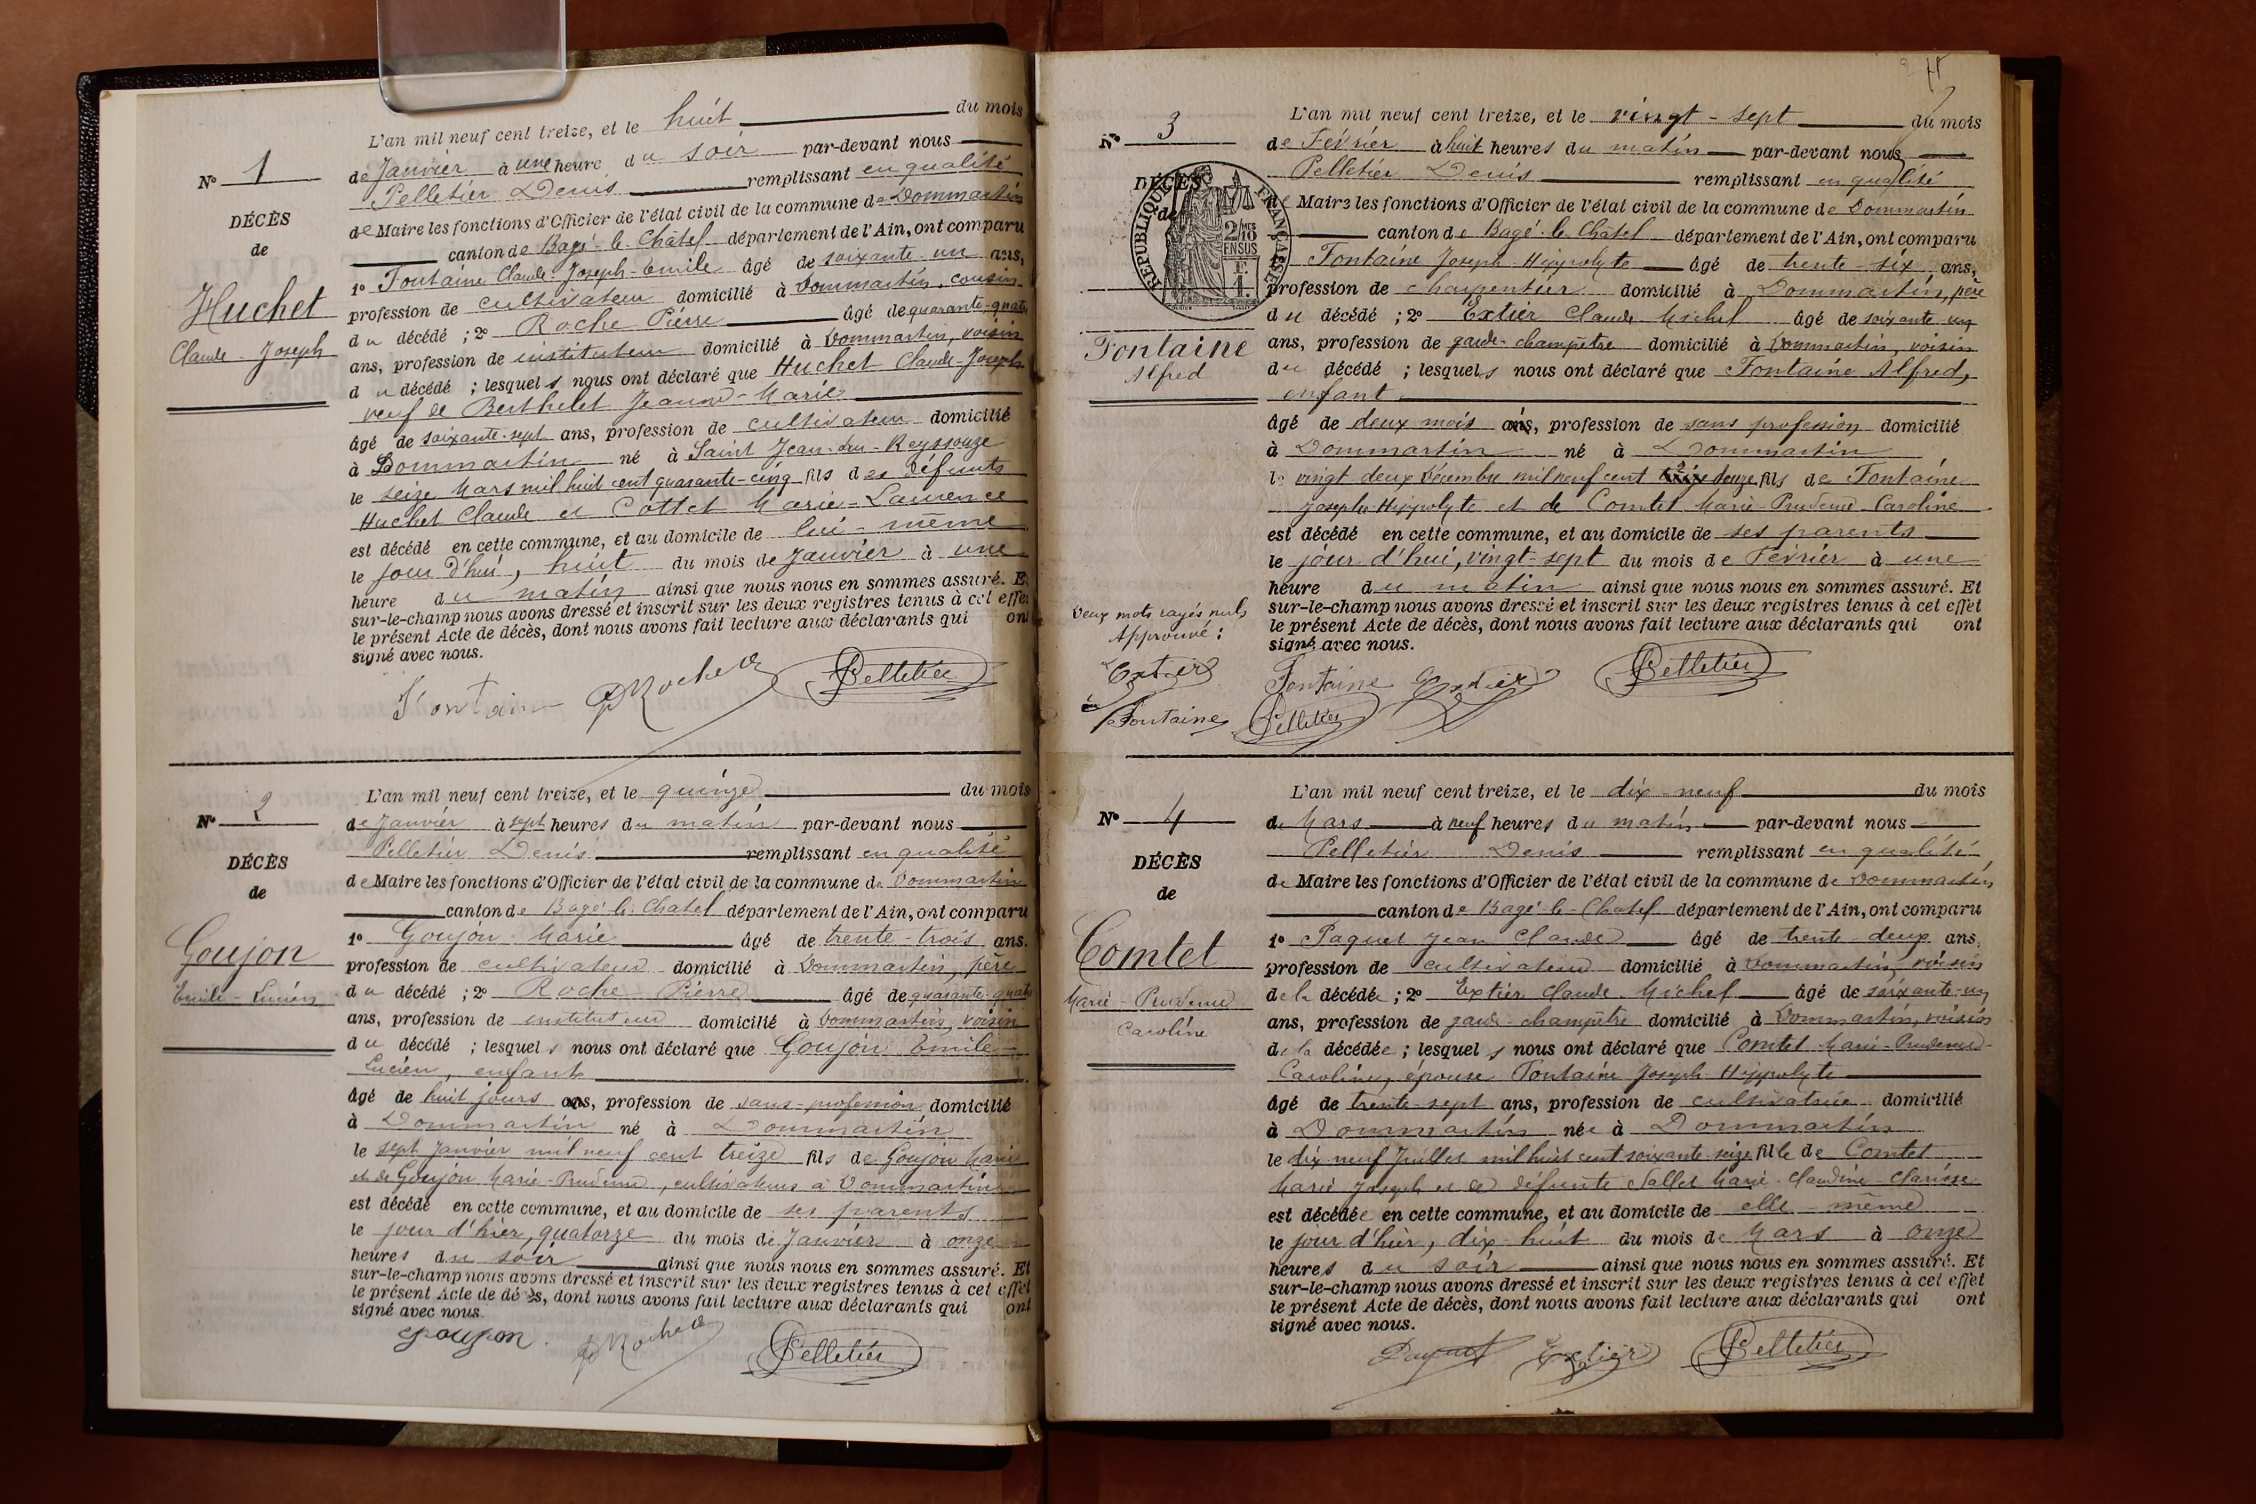 N° 1
DÉCÈS
de
Huchet
Claude-Joseph
L'an mil neuf cent treize, et le huit du mois
de Janvier à une heure du soir par-devant nous
Pelletier Denis remplissant en qualité
de Maire les fonctions d'Officier de l'état civil de la commune de Dommartin
canton de Bagé-le-Châtel département de l'Ain, ont comparu
1° Fontaine Claude-Joseph-Emile âgé de soixante-un ans,
profession de cultivateur domicilié à Dommartin, cousin
du décédé ; 2° Roche Pierre âgé de quarante-quatre
ans, profession de instituteur domicilié à Dommartin, voisin
du décédé ; lesquels nous ont déclaré que Huchet Claude-Joseph
veuf de Berthelet Jeanne-Marie
âgé de soixante-sept ans, profession de cultivateur domicilié
à Dommartin né à Saint Jean-sur-Reyssouze
le seize Mars mil huit cent quarante-cinq fils des défunts
Huchet Claude et Cottet Marie-Laurence
est décédé en cette commune, et au domicile de lui-même
le jour d'hui, huit du mois de Janvier à une
heure du matin ainsi que nous nous en sommes assuré. Et
sur-le-champ nous avons dressé et inscrit sur les deux registres tenus à cet effet
le présent Acte de décès, dont nous avons fait lecture aux déclarants qui ont
signé avec nous.
Fontaine P Roche Pelletier
N° 2
DÉCÈS
de
Goujon
Emile-Lucien
L'an mil neuf cent treize, et le quinze du mois
de Janvier à sept heures du matin par-devant nous
Pelletier Denis remplissant en qualité
de Maire les fonctions d'Officier de l'état civil de la commune de Dommartin
canton de Bagé-le-Chatel département de l'Ain, ont comparu
1° Goujon Marie âgé de trente-trois ans.
profession de cultivateur domicilié à Dommartin, père
du décédé ; 2° Roche Pierre âgé de quarante-quatre
ans, profession de instituteur domicilié à Dommartin, voisin
du décédé ; lesquels nous ont déclaré que Goujon Emile-
Lucien, enfant
âgé de huit jours ans, profession de sans-profession domicilié
à Dommartin né à Dommartin
le sept Janvier mil neuf cent treize fils de Goujon Marie
et de Goujon Marie-Prudence, cultivateurs à Dommartin
est décédé en cette commune, et au domicile de ses parents
le jour d'hier, quatorze du mois de Janvier à onze
heures du soir ainsi que nous nous en sommes assuré. Et
sur-le-champ nous avons dressé et inscrit sur les deux registres tenus à cet effet
le présent Acte de décès, dont nous avons fait lecture aux déclarants qui ont
signé avec nous.
Goujon. P Roche Pelletier
N° 3
DÉCÈS
de
RÉPUBLIQUE FRANÇAISE
2/10 EN SUS
Fontaine
Alfred
L'an mil neuf cent treize, et le vingt-sept du mois
de Février à huit heures du matin par-devant nous
Pelletier Denis remplissant en qualité
de Maire les fonctions d'Officier de l'état civil de la commune de Dommartin
canton de Bagé-le-Châtel département de l'Ain, ont comparu
1° Fontaine Joseph-Hippolyte âgé de trente-six ans,
profession de charpentier domicilié à Dommartin, père
du décédé ; 2° Extier Claude Michel âgé de soixante-un
ans, profession de garde-champêtre domicilié à Dommartin, voisin
du décédé ; lesquels nous ont déclaré que Fontaine Alfred,
enfant
âgé de deux mois ans, profession de sans profession domicilié
à Dommartin né à Dommartin
le vingt deux Décembre mil neuf cent douze fils de Fontaine
Joseph-Hippolyte et de Comtet Marie-Prudence Caroline
est décédé en cette commune, et au domicile de ses parents
le jour d'hui, vingt-sept du mois de Février à une
heure du matin ainsi que nous nous en sommes assuré. Et
sur-le-champ nous avons dressé et inscrit sur les deux registres tenus à cet effet
le présent Acte de décès, dont nous avons fait lecture aux déclarants qui ont
signé avec nous.
Deux mots rayés nuls
Approuvé :
Extier
Fontaine Pelletier
Fontaine Extier Pelletier
N° 4
DÉCÈS
de
Comtet
Marie-Prudence
Caroline
L'an mil neuf cent treize, et le dix-neuf du mois
de Mars à neuf heures du matin par-devant nous
Pelletier Denis remplissant en qualité
de Maire les fonctions d'Officier de l'état civil de la commune de Dommartin
canton de Bagé-le-Chatel département de l'Ain, ont comparu
1° Paquet Jean Claude âgé de trente-deux ans,
profession de cultivateur domicilié à Dommartin, voisin
de la décédée ; 2° Extier Claude-Michel âgé de soixante-un
ans, profession de garde-champêtre domicilié à Dommartin, voisin
de la décédée ; lesquels nous ont déclaré que Comtet Marie-Prudence-
Caroline, épouse Fontaine Joseph-Hippolyte
âgé de trente-sept ans, profession de cultivatrice domicilié
à Dommartin née à Dommartin
le dix-neuf Juillet mil huit cent soixante-seize fille de Comtet
Marie Joseph et de défunte Sallet Marie-Claudine-Clarisse
est décédée en cette commune, et au domicile de elle-même
le jour d'hier, dix-huit du mois de Mars à onze
heures du soir ainsi que nous nous en sommes assuré. Et
sur-le-champ nous avons dressé et inscrit sur les deux registres tenus à cet effet
le présent Acte de décès, dont nous avons fait lecture aux déclarants qui ont
signé avec nous.
Paquet Extier Pelletier